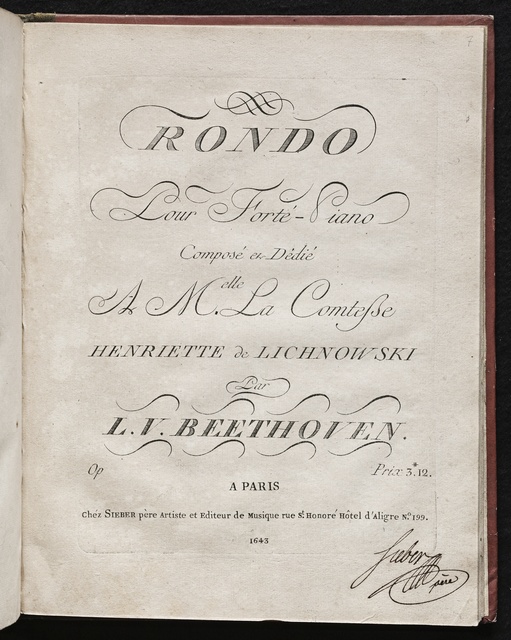 RONDO
Pour Forté-Piano
Composé et Dédié
A M.elle La Comtesse
HENRIETTE de LICHNOWSKI
Par
L.V. BEETHOVEN.
Op Prix 3.# 12.
A PARIS
Chéz SIEBER père Artiste et Editeur de Musique rue S.t Honoré Hôtel d'Aligre N.o 199.
1643
Sieber
père